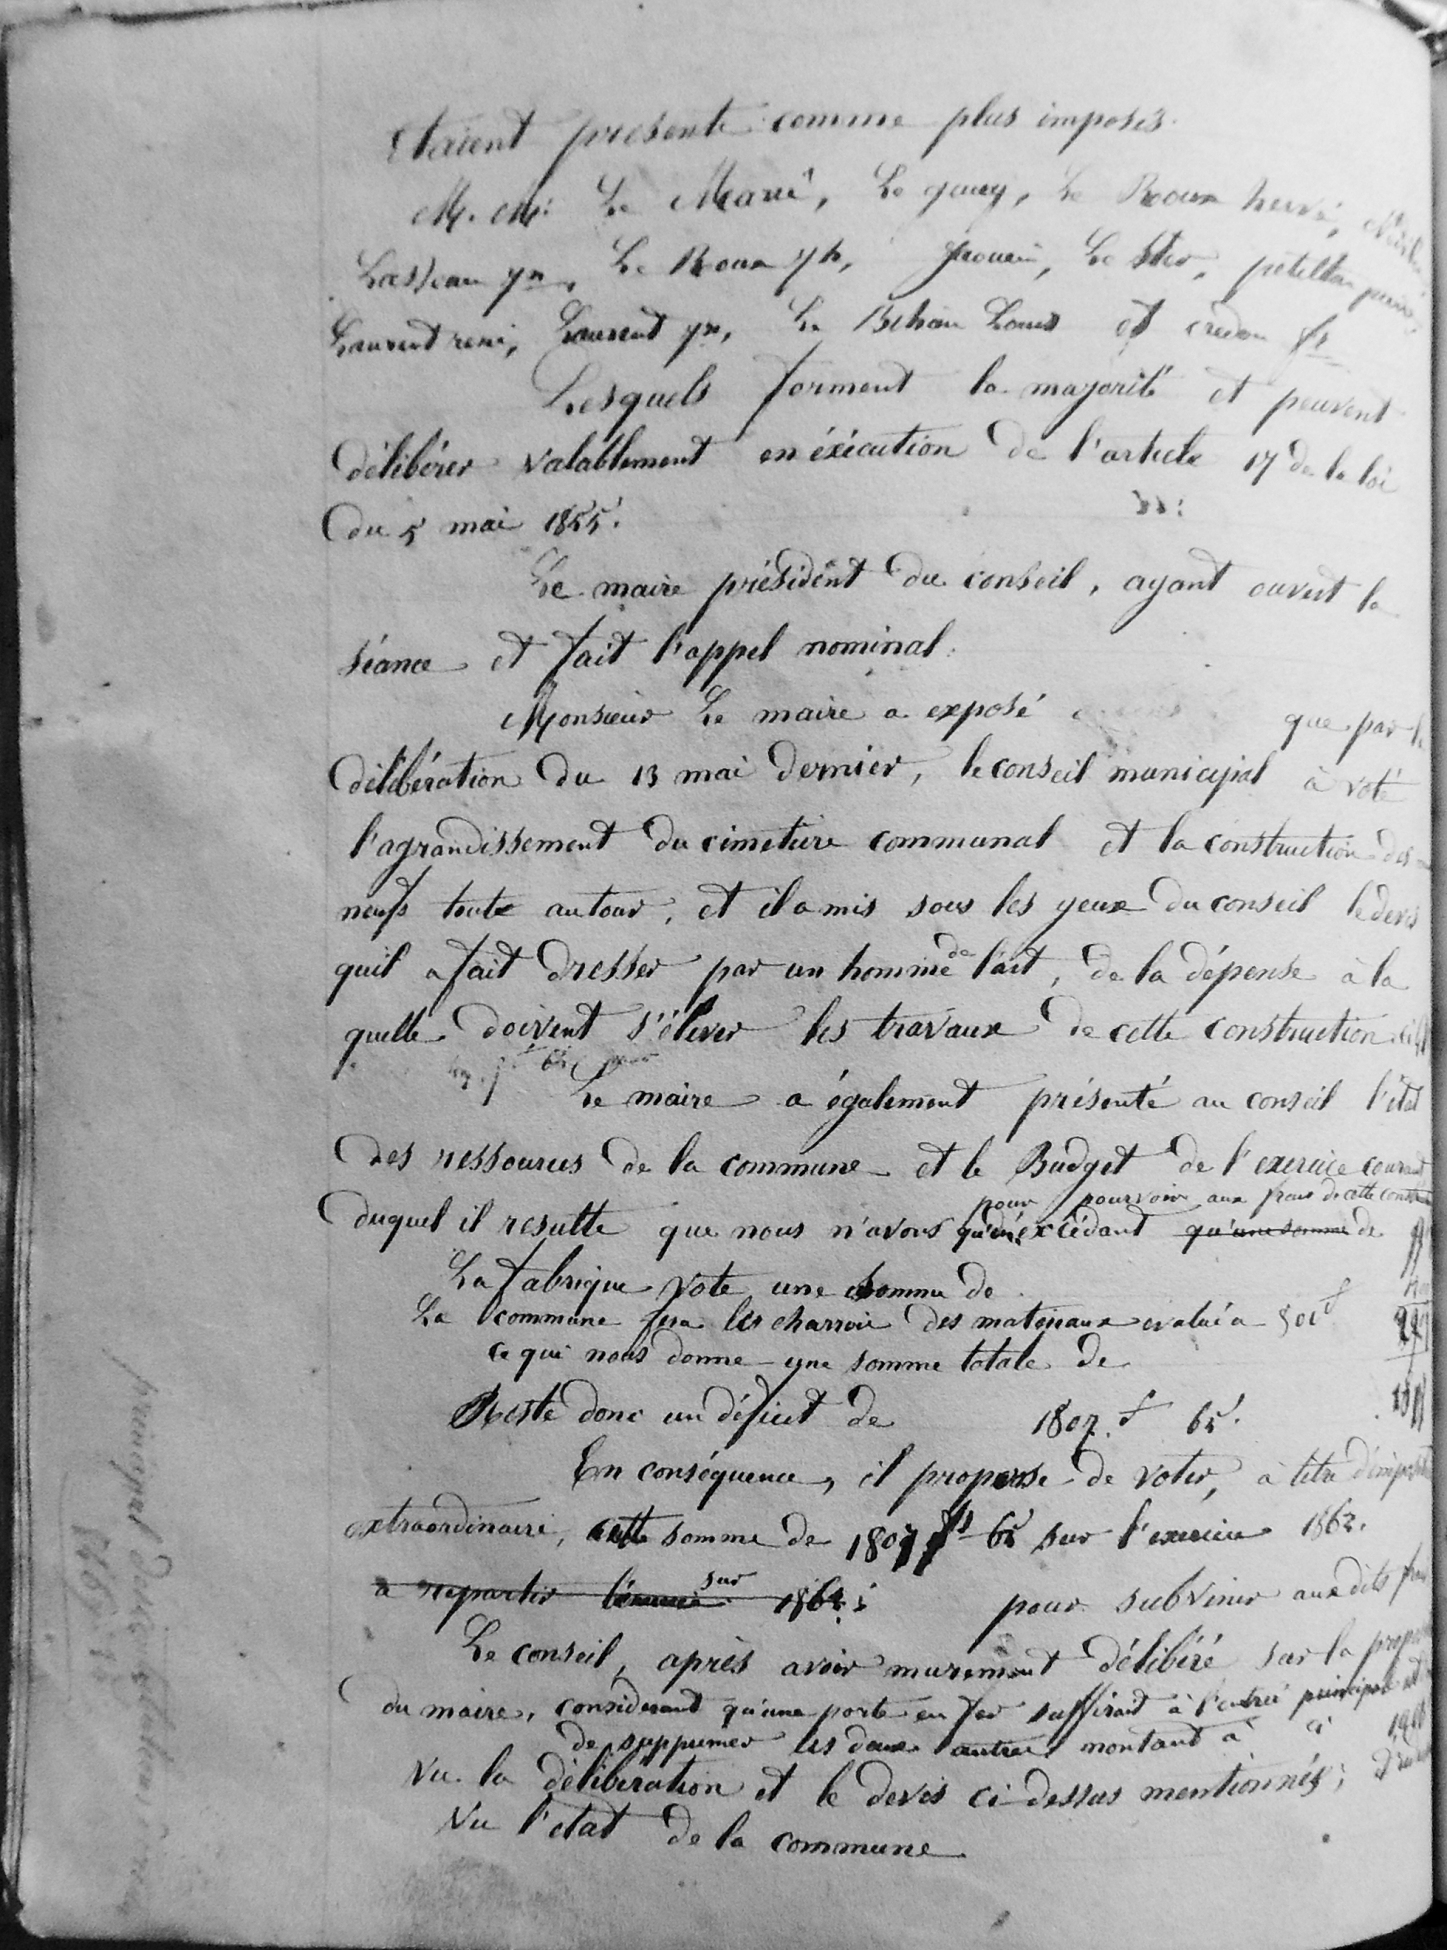 Etaient présents comme plus imposés.
M. M. Le Marié, Le gouy, Le Roux hervé,
Le Roux yh, Le Ster,
Laurent rené, Laurent yn, Le Bihan Louis et credou fs
Lesquels forment la majorité et peuvent
délibérer valablement en éxécution de l'article 17 de la loi
du 5 mai 1855.
Le maire président du conseil, ayant ouvert la
séance et fait l'appel nominal.
Monsieur Le maire a exposé que par la
délibération du 13 mai dernier, le conseil municipal à voté
l'agrandissement du cimetière communal et la construction des
neufs toute autour, et il a mis sous les yeux du conseil le devis
quil a fait dresser par un homme de l'art, de la dépense à la
quelle doivent s'élever les travaux de cette construction
Le maire a également présenté au conseil l'état
des ressources de la commune et le Budget de l'exercice courant
pour pourvoir aux frais de cette
duquel il resulte que nous n'avons qu'un excédant qu'une somme de
La fabrique vote une somme de
La commune fera les charrois des materiaux evalué a 500 f
ce qui nous donne une somme totale de
Reste donc un déficit de 1807 f 65.
En conséquence, il propose de voter, à titre d'imposition
extraordinaire, cette somme de 1807 fs 65 sur l'exercice 1862.
a repartir sur 1862; pour subvenir aux dits frais
Le conseil, après avoir murement délibéré sur la
du maire, considerant qu'une porte en fer suffirait à l'entrée principale et
de supprimer les deux autres montant à
Vu la délibération et le devis ci-dessus mentionnés;
Vu l'etat de la commune